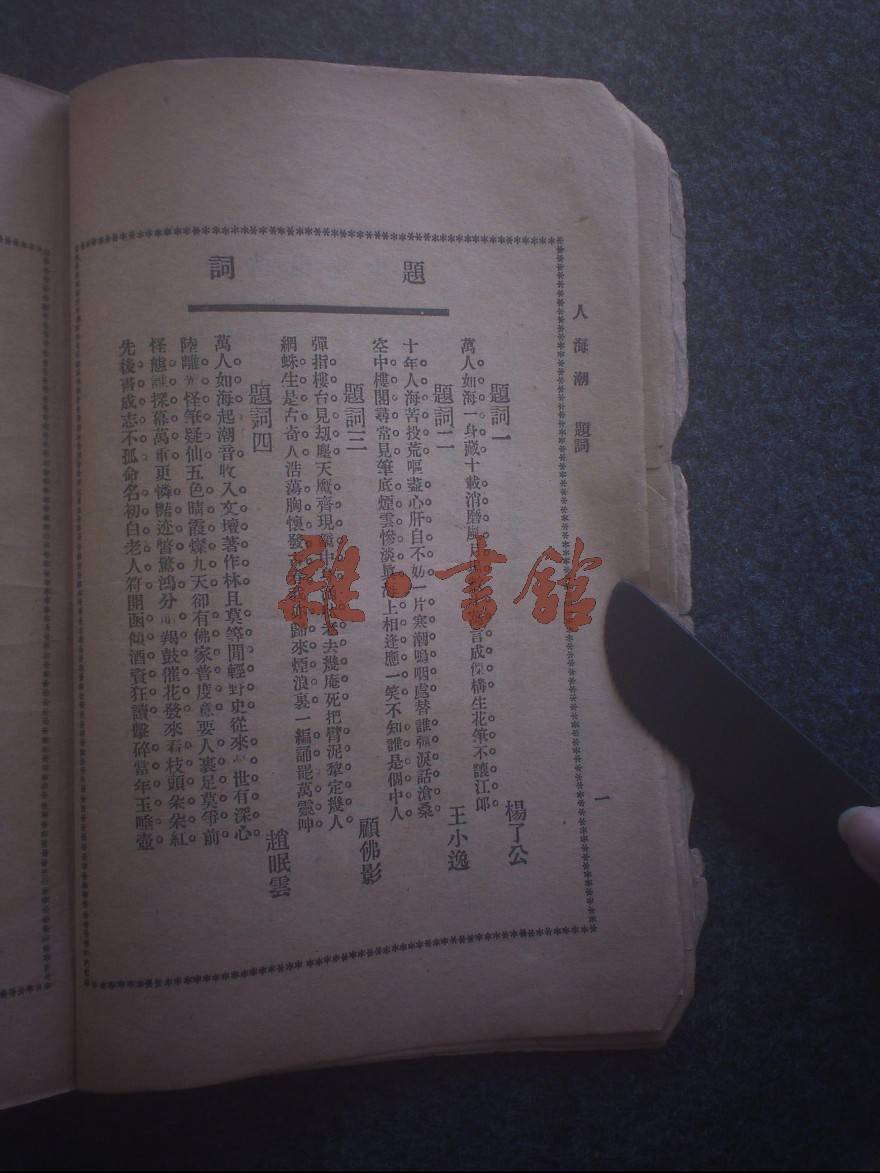 人海潮 題詞
一
題詞
題詞一 楊了公
萬人如海一身藏十載消磨風月場言成傑構生花筆不讓江郎
題詞二 王小逸
十年人海苦投荒嘔盡心肝自不妨一片寒潮嗚咽處替誰彈淚話滄桑
空中樓閣尋常見筆底煙雲慘淡眞海上相逢應一笑不知誰是個中人
題詞三 顧佛影
彈指樓台見刼塵天魔齊現中去幾庵死把臂泥犂定幾人
網蛛生是古奇人浩蕩胸懷發歸來煙浪裏一編誦罷萬靈呻
題詞四 趙眠雲
萬人如海起潮音收入文壇著作林且莫等閒輕野史從來世有深心
陸離光怪筆疑仙五色晴霞燦九天卻有佛家普度意要人裏足莫爭前
怪態誰探幕萬重更憐豔迹瞥驚鴻分明羯鼓催花發來看枝頭朵朵紅
先後書成志不孤命名初白老人符開函傾酒賚狂讀擊碎當年玉唾壺
雜·書館